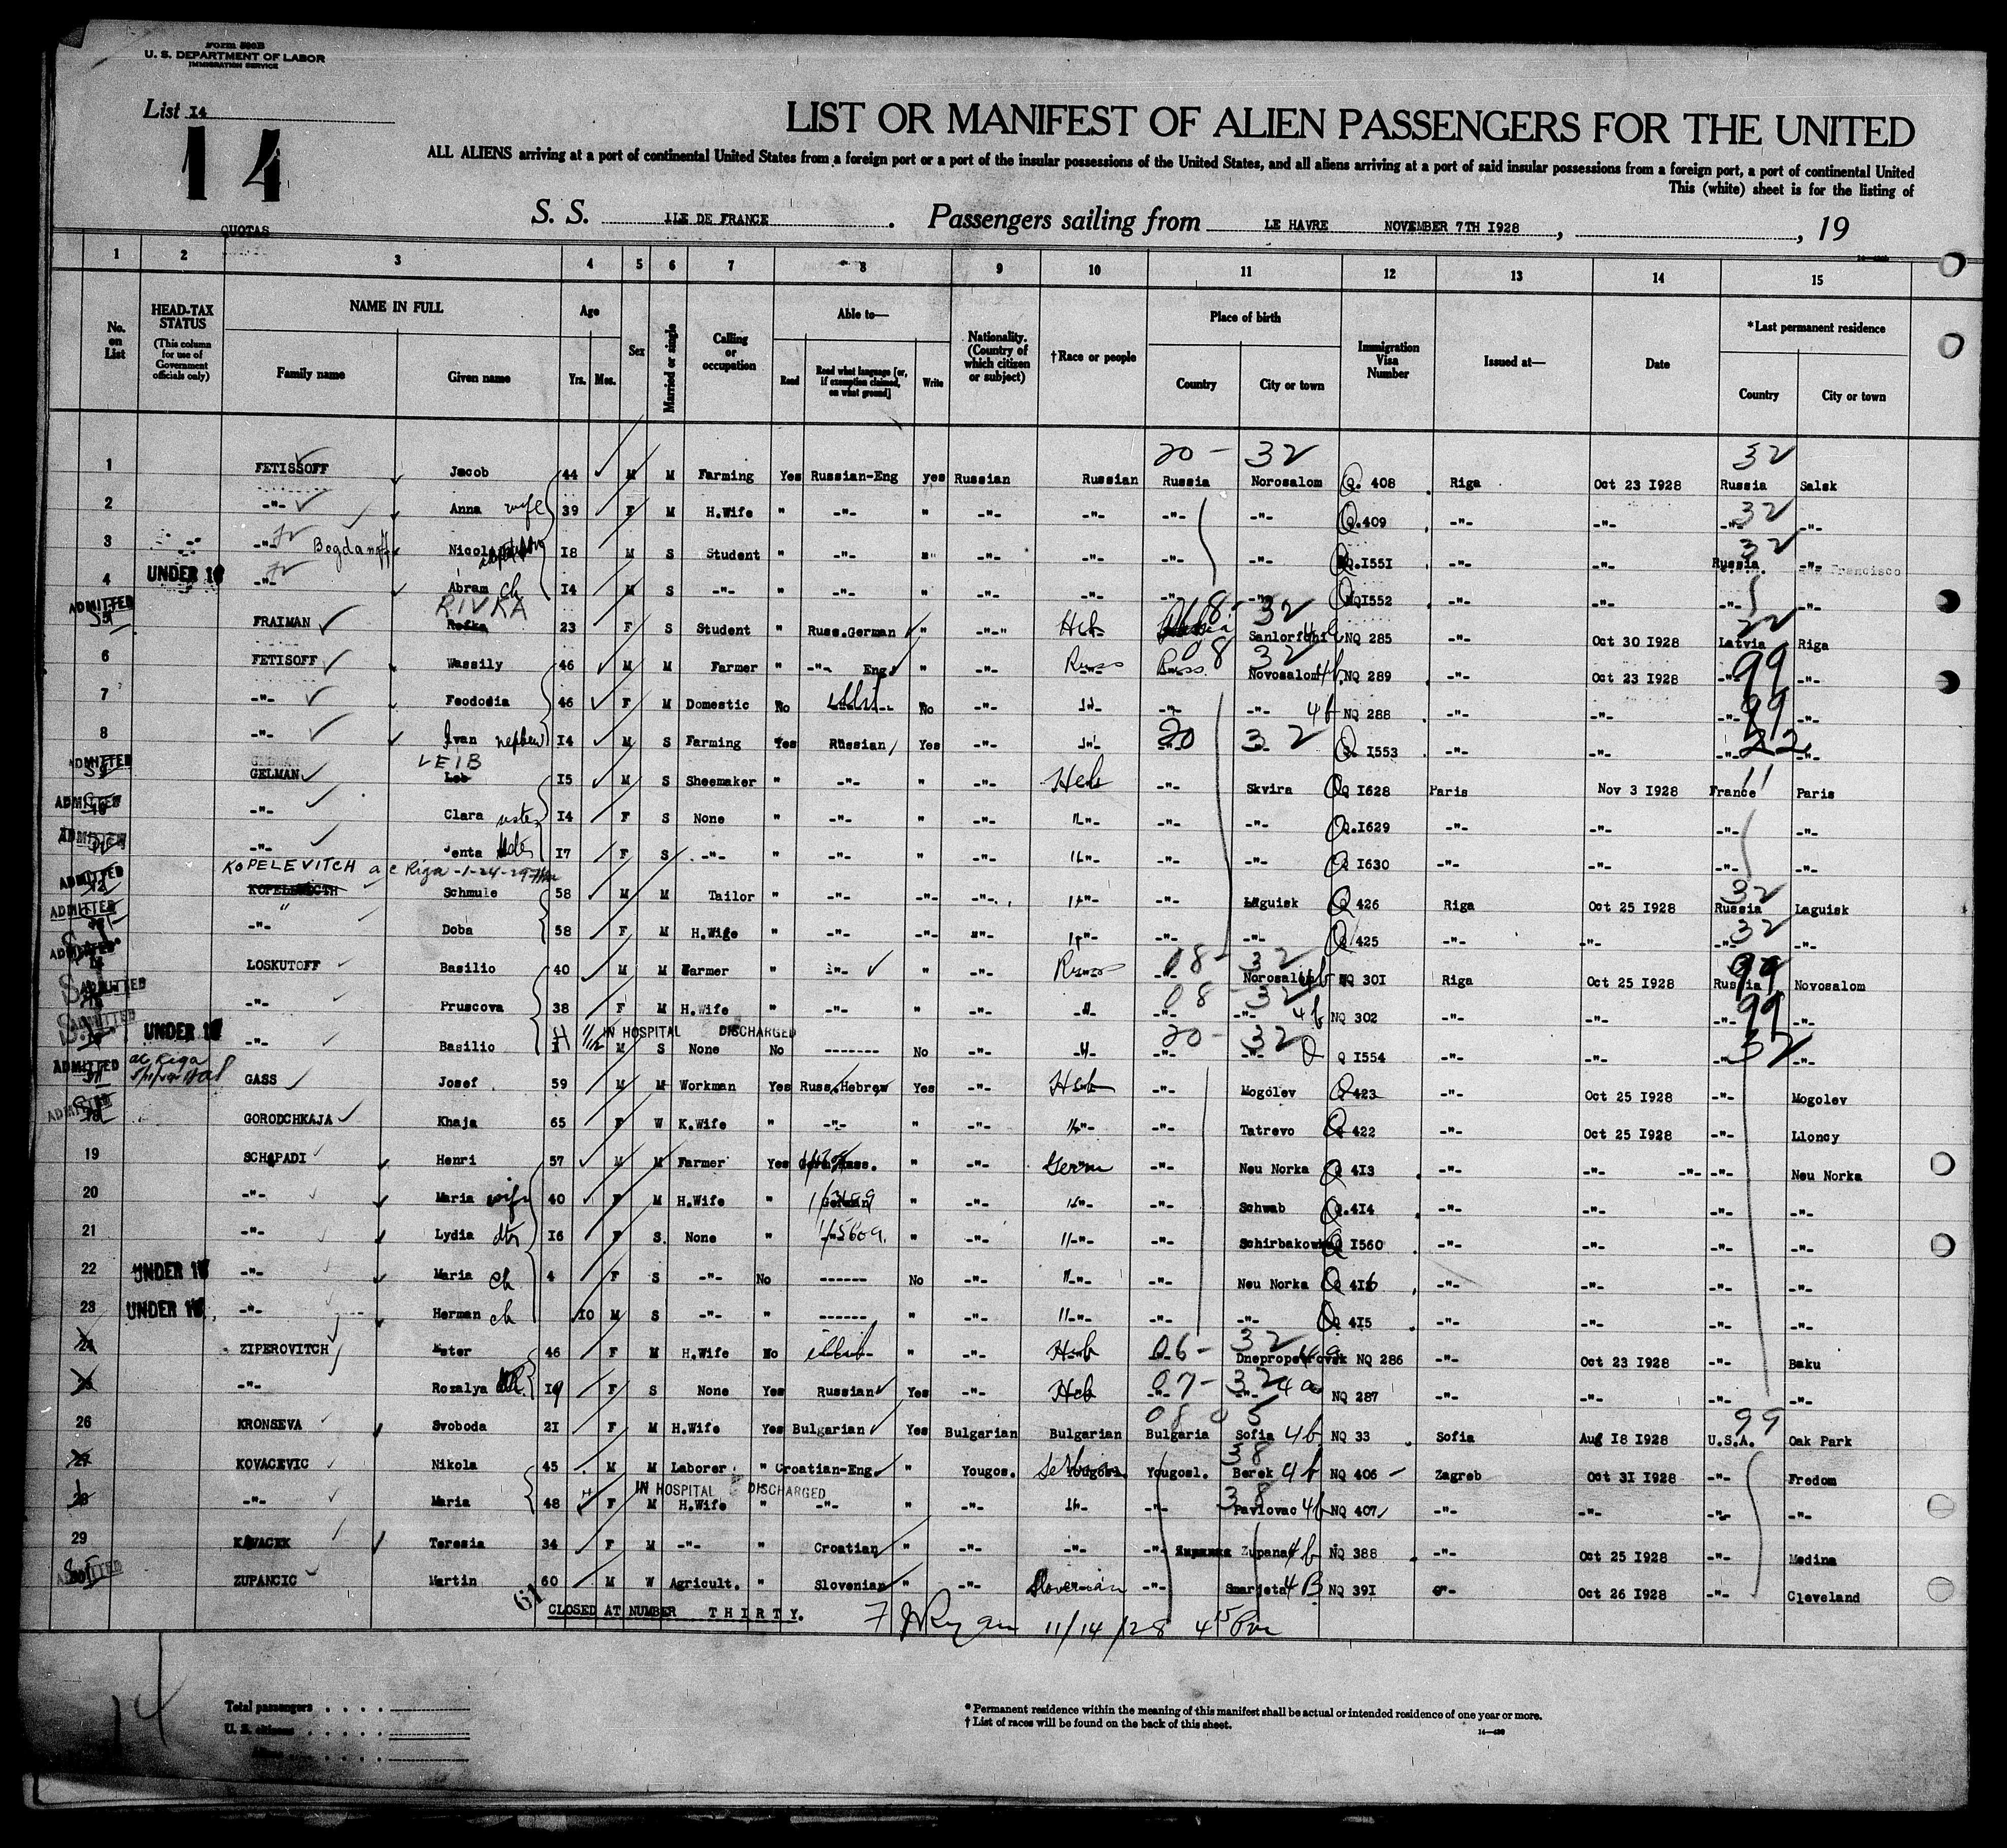 Form 500B
U. S. DEPARTMENT OF LABOR
IMMIGRATION SERVICE
List 14
14
LIST OR MANIFEST OF ALIEN PASSENGERS FOR THE UNITED
ALL ALIENS arriving at a port of continental United States from a foreign port or a port of the insular possessions of the United States, and all aliens arriving at a port of said insular possessions from a foreign port, a port of continental United
This (white) sheet is for the listing of
S. S. ILE DE FRANCE. Passengers sailing from LE HAVRE NOVEMBER 7TH 1928, , 19
QUOTAS
1 2 3 4 5 6 7 8 9 10 11 12 13 14 15
No. on List
HEAD-TAX STATUS (This column for use of Government officials only)
NAME IN FULL Family name Given name
Age Yrs. Mos.
Sex
Married or single
Calling or occupation
Able to— Read Read what language [or, if exemption claimed, on what ground] Write
Nationality. (Country of which citizen or subject)
†Race or people
Place of birth Country City or town
Immigration Visa Number
Issued at—
Date
*Last permanent residence Country City or town
20 - 32 32
1 FETISSOFF Jacob 44 M M Farming Yes Russian-Eng yes Russian Russian Russia Norosalom Q. 408 Riga Oct 23 1928 Russia Salsk
2 -"- Anna wife 39 F M H.Wife " -"- " -"- -"- -"- -"- Q.409 -"- -"- -"- 32 -"-
3 -"- Bogdanoff 18 M S Student " -"- " -"- -"- -"- -"- Q.1551 -"- -"- 32 Russia -"-
4 UNDER 16 -"- Abram ch 14 M S -"- " -"- " -"- -"- -"- -"- Q1552 -"- -"- -"- -"-
ADMITTED FRAIMAN RIVKA 23 F S Student " Russ.German " -"- Heb 32 NQ 285 -"- Oct 30 1928 Latvia Riga
6 FETISOFF Wassily 46 M M Farmer " -"- Eng. " -"- Russ Russ. 08 32 Novosalom 4b NQ 289 -"- Oct 23 1928 -"- 99 -"-
7 -"- Feodosia 46 F M Domestic No No -"- -"- -"- -"- 4b NQ 288 -"- -"- -"- 99 -"-
8 -"- Ivan nephew 14 M S Farming Yes Russian Yes -"- -"- 20 32 Q 1553 -"- -"- -"- -"-
ADMITTED GELMAN LEIB 15 M S Sheemaker " -"- " -"- Heb -"- Skvira Q 1628 Paris Nov 3 1928 France 11 Paris
ADMITTED -"- Clara sister 14 F S None " -"- " -"- -"- -"- -"- Q.1629 -"- -"- -"- -"-
ADMITTED -"- Jenta 17 F S -"- " -"- " -"- -"- -"- -"- Q 1630 -"- -"- -"- -"-
KOPELEVITCH a c Riga -1-24-29
ADMITTED Schmule 58 M M Tailor " -"- -"- -"- -"- -"- Laguisk Q 426 Riga Oct 25 1928 32 Russia Laguisk
ADMITTED -"- Doba 58 F M H.Wife " -"- -"- -"- -"- -"- -"- Q 425 -"- -"- 32 -"- -"-
ADMITTED LOSKUTOFF Basilio 40 M M Farmer " -"- " -"- Russ 08 - 32 NQ 301 Riga Oct 25 1928 Russia 99 Novosalom
ADMITTED -"- Pruscova 38 F M H.Wife " -"- " -"- -"- 08 - 32 -"- 4b NQ 302 -"- -"- -"- 99 -"-
IN HOSPITAL DISCHARGED
ADMITTED UNDER 16 -"- Basilio M S None No ------- No -"- -"- 20 - 32 -"- Q 1554 -"- -"- -"- -"-
ADMITTED GASS Josef 59 M M Workman Yes Russ.Hebrew Yes -"- Heb -"- Mogolev Q 423 -"- Oct 25 1928 -"- Mogolev
ADMITTED 18 GORODCHKAJA Khaja 65 F W K.Wife " -"- " -"- -"- -"- Tatrevo Q 422 -"- Oct 25 1928 -"- Lloncy
19 SCHAPADI Henri 57 M M Farmer Yes " -"- Germ -"- Neu Norka Q 413 -"- -"- -"- Neu Norka
20 -"- Maria wife 40 F M H.Wife " German " -"- -"- -"- Schwab Q.414 -"- -"- -"- -"-
21 -"- Lydia dtr 16 F S. None " " -"- -"- -"- Q 1560 -"- -"- -"- -"-
22 UNDER 16 -"- Maria ch 4 F S -"- No ------ No -"- -"- -"- Neu Norka Q 416 -"- -"- -"- -"-
23 UNDER 16 -"- Herman ch 10 M S -"- " ------ " -"- -"- -"- -"- Q 415 -"- -"- -"- -"-
24 ZIPEROVITCH Ester 46 F M H.Wife No " -"- Heb 06 - 32 Dnepropetrovsk NQ 286 -"- Oct 23 1928 -"- Baku
25 -"- Rozalya 19 F S None Yes Russian Yes -"- Heb 07 - 32 4a NQ 287 -"- -"- -"- -"-
26 KRONSEVA Svoboda 21 F M H.Wife Yes Bulgarian Yes Bulgarian Bulgarian Bulgaria 08 05 Sofia 4b NQ 33 Sofia Aug 18 1928 U.S.A. 99 Oak Park
27 KOVACEVIC Nikola 45 M M Laborer " Croatian-Eng. " Yougos. Serbian Yougosl. 38 Berek 4b NQ 406 Zagreb Oct 31 1928 -"- Fredom
IN HOSPITAL DISCHARGED
28 -"- Maria 48 F M H.Wife " -"- " -"- -"- -"- 38 Pavlovac 4b NQ 407 -"- -"- -"- -"-
29 KAVACEK Teresia 34 F M -"- " Croatian " -"- -"- -"- Zupana 4b NQ 388 -"- Oct 25 1928 -"- Medina
ADMITTED ZUPANCIC Martin 60 M W Agricult. " Slovenian " -"- Slovenian -"- Smarjeta 4B NQ 391 -"- Oct 26 1928 -"- Cleveland
61 CLOSED AT NUMBER THIRTY. Ryan 11/14/28 4 15 Pm
14
Total passengers . . . .
U. S. citizens . . . . .
Aliens . . . .
* Permanent residence within the meaning of this manifest shall be actual or intended residence of one year or more.
† List of races will be found on the back of this sheet.